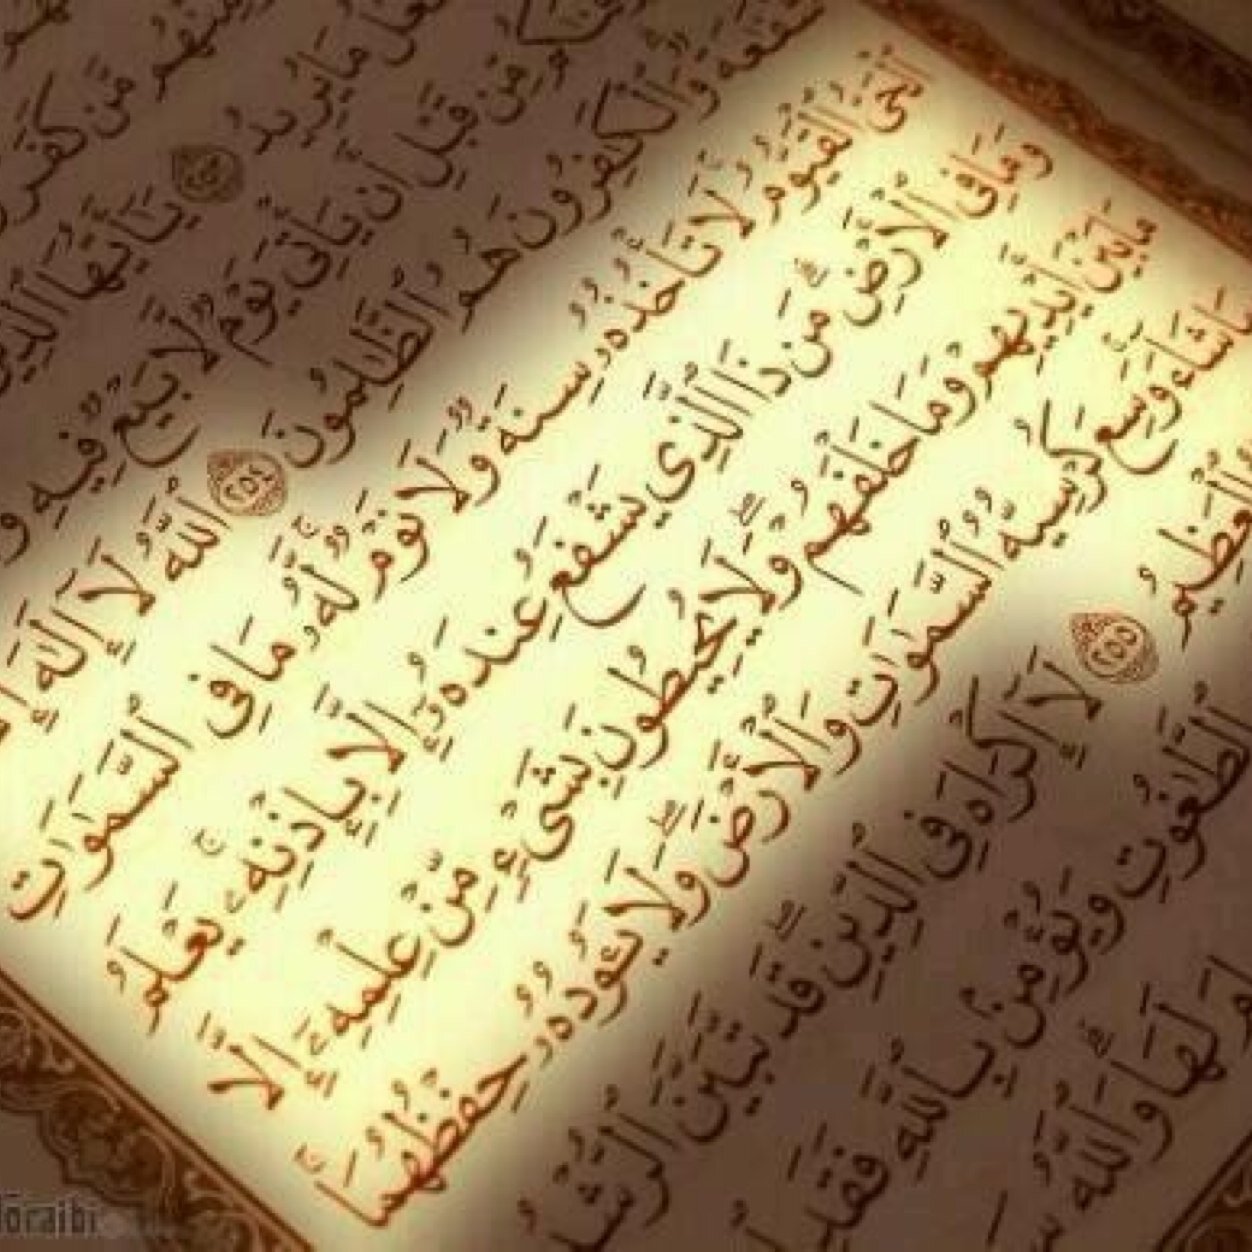 مِنْهُم مَّن كَفَرَ
يَفْعَلُ مَا يُرِيدُ ٢٥٣ يَٰٓأَيُّهَا ٱلَّذِينَ
مِّن قَبْلِ أَن يَأْتِىَ يَوْمٌ لَّا بَيْعٌ فِيهِ وَ
شَفَٰعَةٌ وَٱلْكَٰفِرُونَ هُمُ ٱلظَّٰلِمُونَ ٢٥٤ ٱللَّهُ لَآ إِلَٰهَ إِ
ٱلْحَىُّ ٱلْقَيُّومُ لَا تَأْخُذُهُۥ سِنَةٌ وَلَا نَوْمٌ لَّهُۥ مَا فِى ٱلسَّمَٰوَٰتِ
وَمَا فِى ٱلْأَرْضِ ۗ مَن ذَا ٱلَّذِى يَشْفَعُ عِندَهُۥٓ إِلَّا بِإِذْنِهِۦ ۚ يَعْلَمُ
مَا بَيْنَ أَيْدِيهِمْ وَمَا خَلْفَهُمْ ۖ وَلَا يُحِيطُونَ بِشَىْءٍ مِّنْ عِلْمِهِۦٓ إِلَّا
بِمَا شَآءَ ۚ وَسِعَ كُرْسِيُّهُ ٱلسَّمَٰوَٰتِ وَٱلْأَرْضَ ۖ وَلَا يَـُٔودُهُۥ حِفْظُهُمَا ۚ
ٱلْعَظِيمُ ٢٥٥ لَآ إِكْرَاهَ فِى ٱلدِّينِ ۖ قَد تَّبَيَّنَ ٱلرُّشْدُ
ٱلطَّٰغُوتِ وَيُؤْمِنۢ بِٱللَّهِ فَقَدِ ٱ
لَهَا ۗ وَٱللَّهُ سَ
loraibi